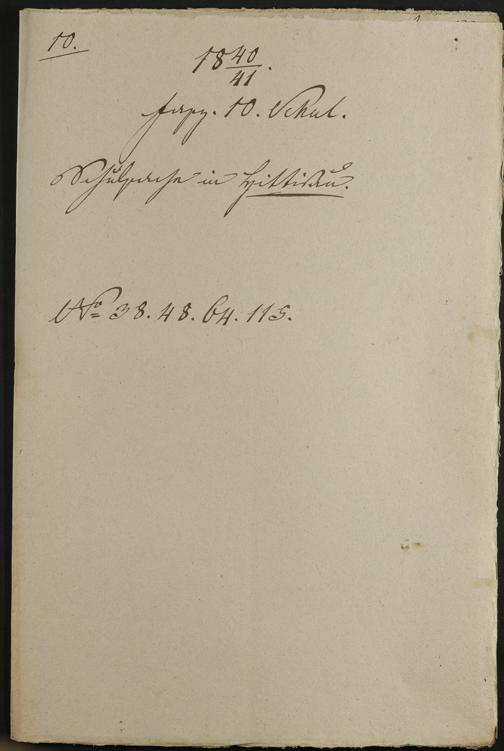 10.
18 40/41.
Fasz. 10. Schul.
Schulsache in Hittisau.
No 38. 48. 64. 115.